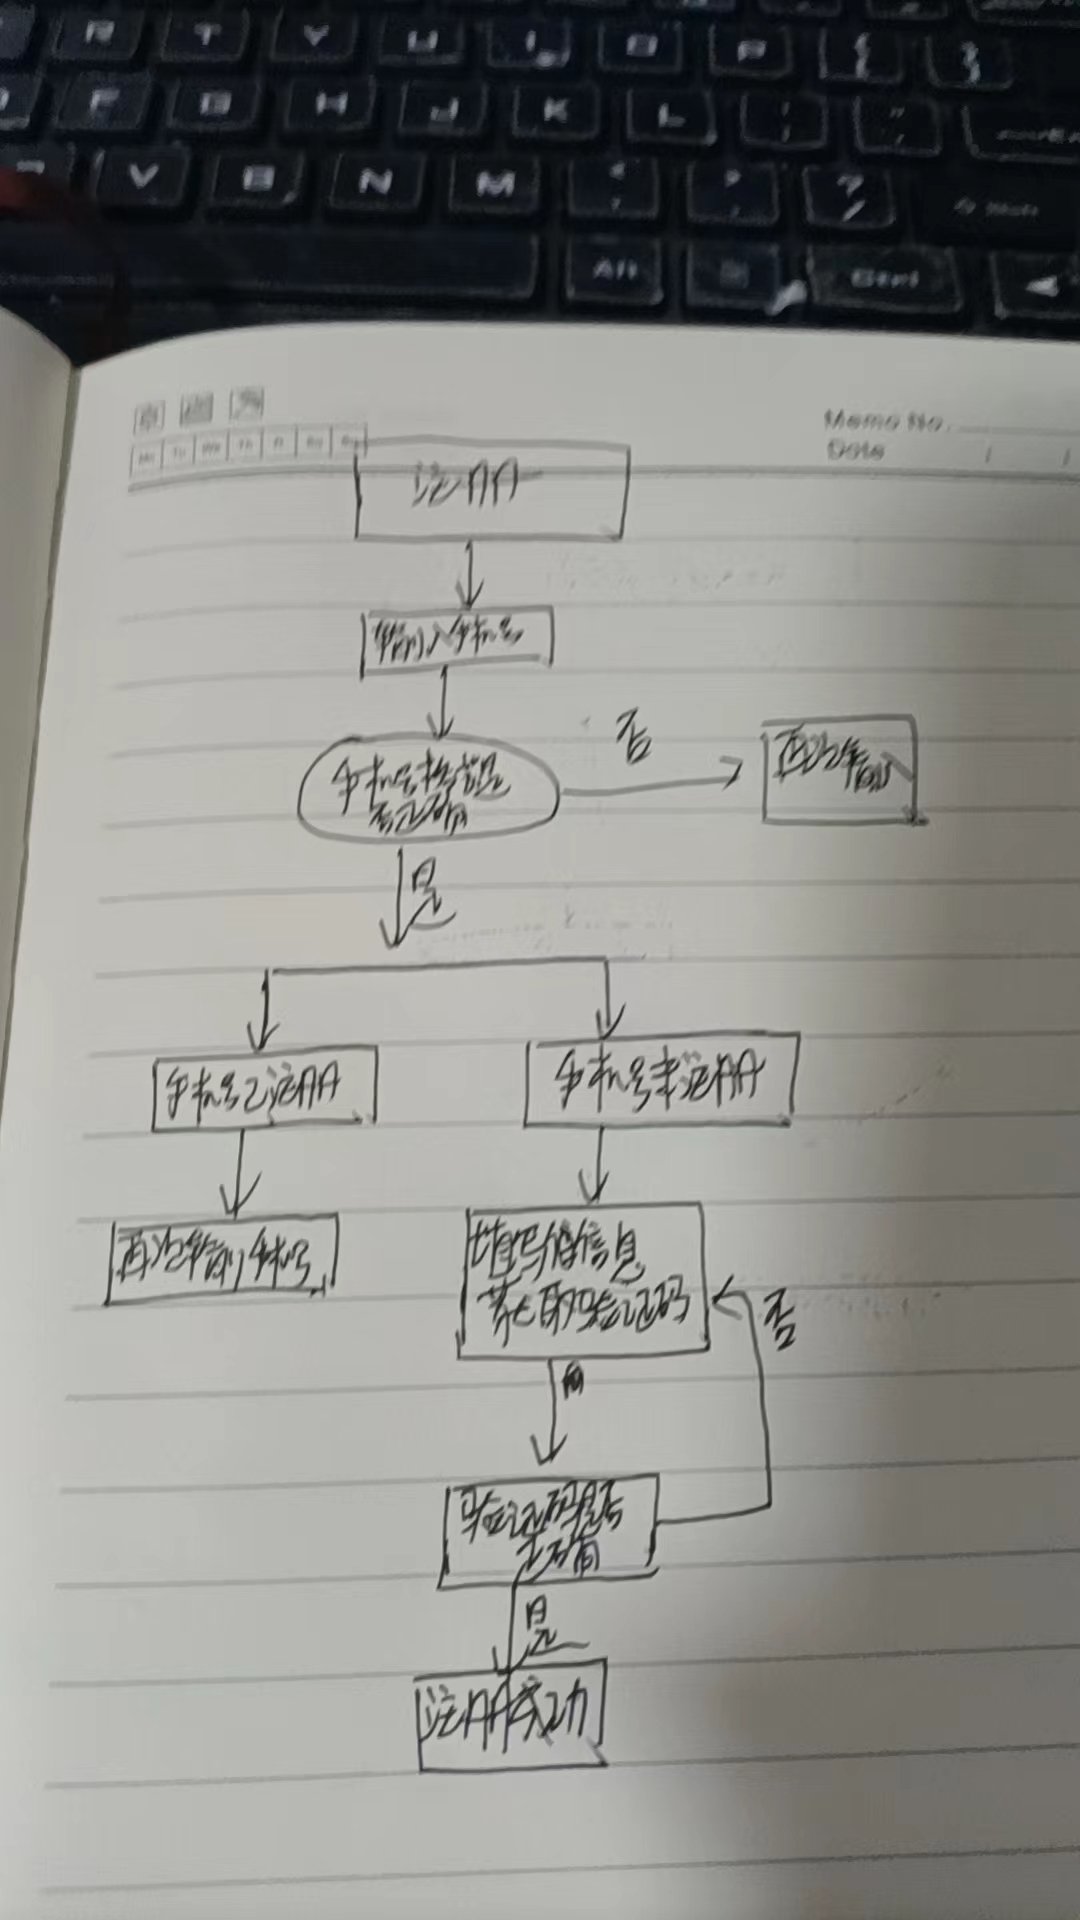 R T Y U I O P { }
F G H J K L : "
V B N M < > ? /
Alt Ctrl
Memo No.
Mo Tu We Th Fr Sa Su
Date / /
注册
输入手机号
手机号格式是
否正确
否
再次输入
是
手机号已注册
手机号未注册
再次输入手机号
填写信息
获取验证码
否
验证码是否
正确
是
注册成功